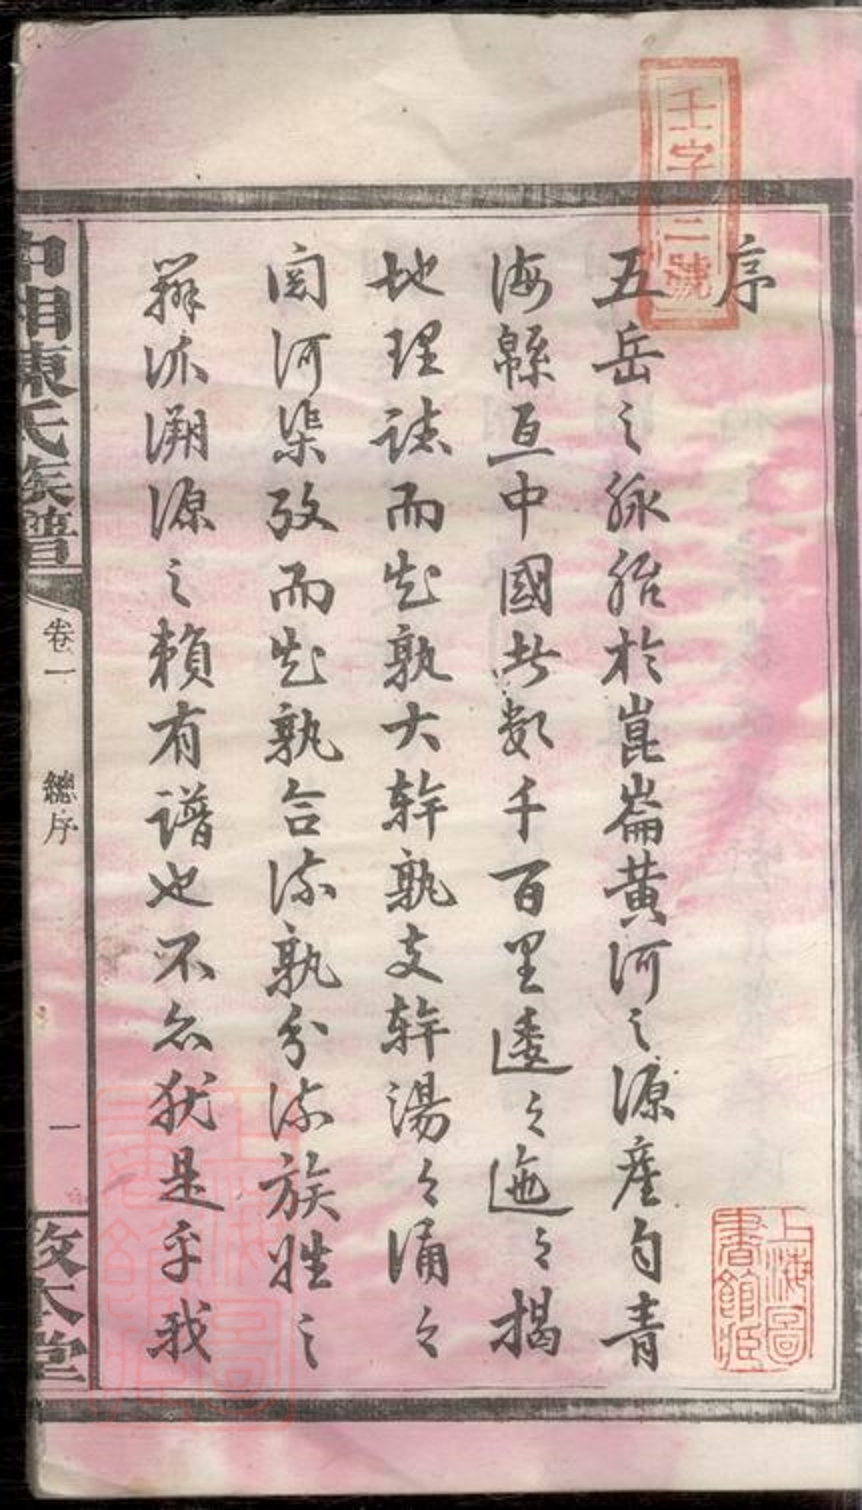 序
五岳之脉胎於崑崙黄河之源產自青
海緜亘中國者數千百里逶々迤々揭
地理誌而知孰大幹孰支幹湯々涌々
閱河渠攷而知孰合流孰分流族姓之
辨派溯源之賴有譜也不亦猶是乎我
壬字三號
上海圖書館藏
中湘陳氏族譜
卷一
總序
一
敦本堂